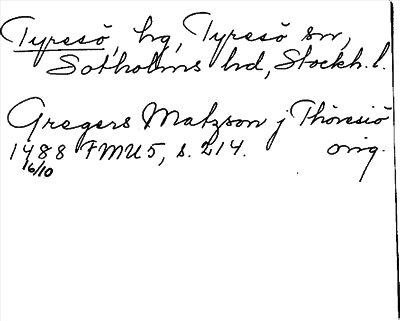 Tyresö, hg, Tyresö sn,
Sotholms hd, Stockh. l.
Gregers Matzson j Thöresiö
1488 FMU 5, s. 214. orig.
16/10